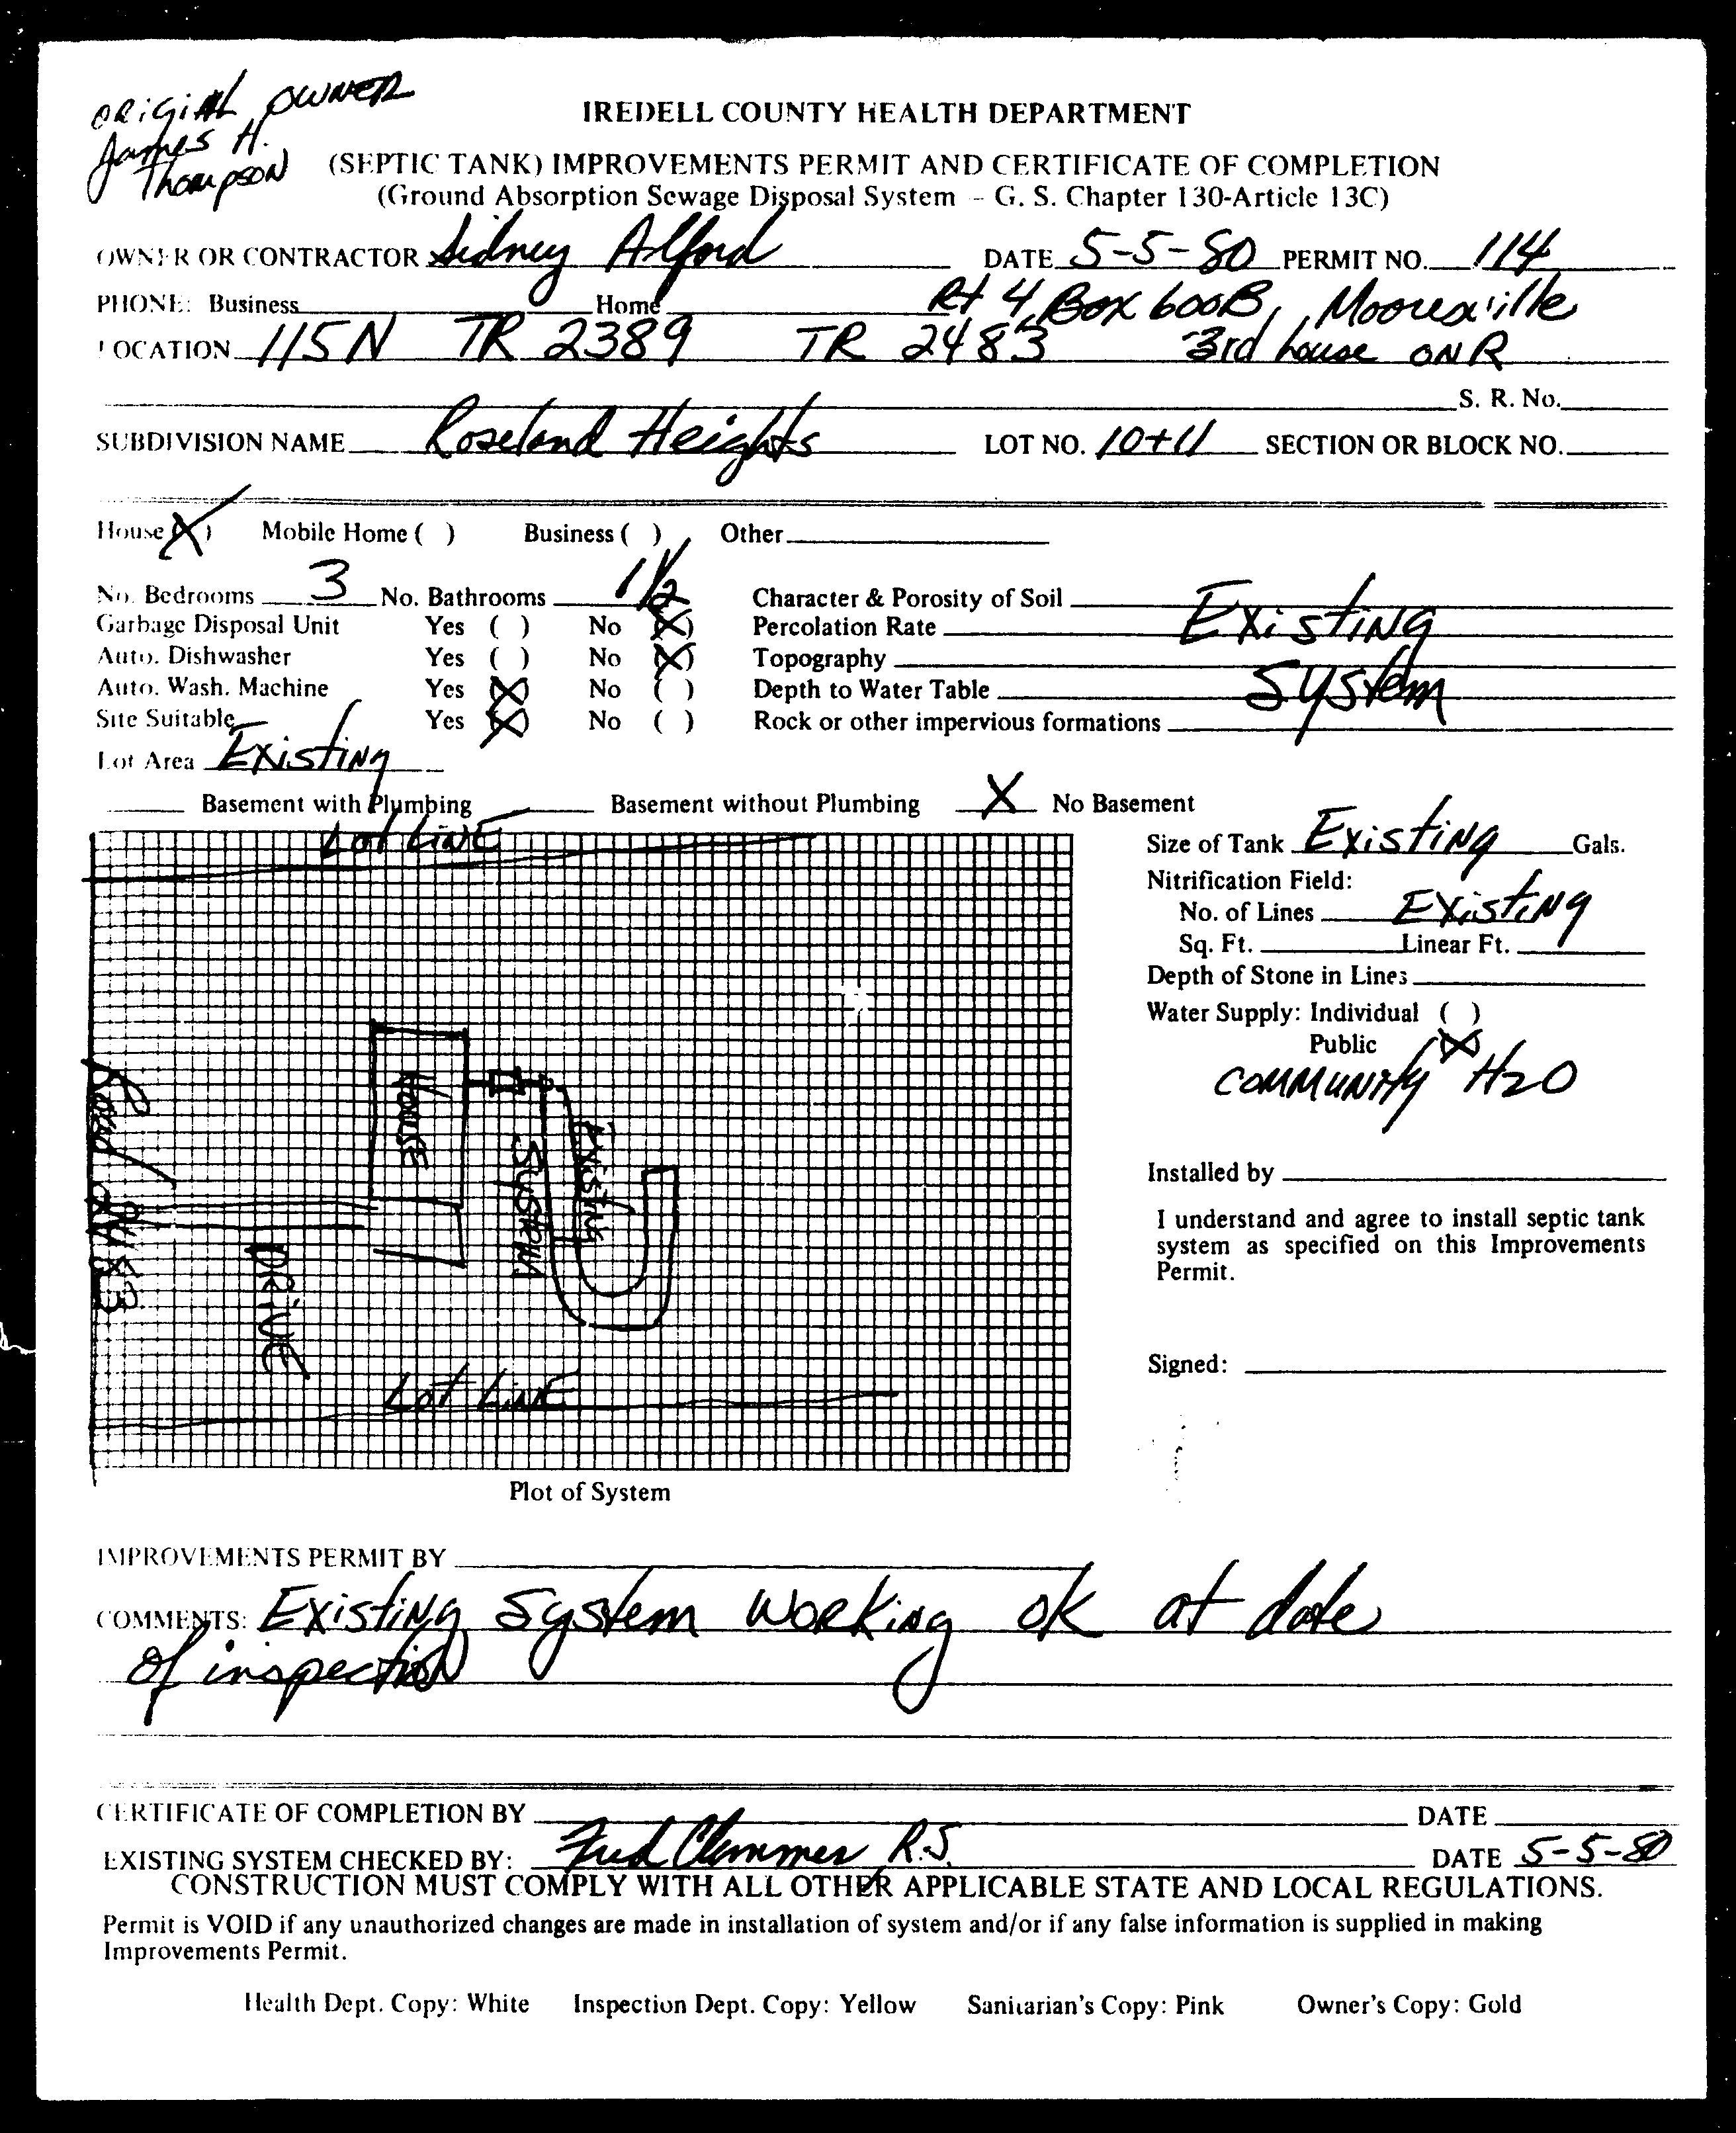 ORIGINAL OWNER
James H.
Thompson
IREDELL COUNTY HEALTH DEPARTMENT
(SEPTIC TANK) IMPROVEMENTS PERMIT AND CERTIFICATE OF COMPLETION
(Ground Absorption Sewage Disposal System - G. S. Chapter 130-Article 13C)
OWNER OR CONTRACTOR Sidney Alford DATE 5-5-80 PERMIT NO. 114
PHONE: Business Home Rt 4, Box 600B, Mooresville
LOCATION 115N TR 2389 TR 2483 3rd house ON R
S. R. No.
SUBDIVISION NAME Roseland Heights LOT NO. 10+11 SECTION OR BLOCK NO.
House (X) Mobile Home ( ) Business ( ) Other
No. Bedrooms 3 No. Bathrooms 1 1/2 Character & Porosity of Soil Existing
Garbage Disposal Unit Yes ( ) No (X) Percolation Rate
Auto. Dishwasher Yes ( ) No (X) Topography System
Auto. Wash. Machine Yes (X) No ( ) Depth to Water Table
Site Suitable Yes (X) No ( ) Rock or other impervious formations
Lot Area Existing
Basement with Plumbing Basement without Plumbing X No Basement
Lot LINE
Size of Tank Existing Gals.
Nitrification Field:
No. of Lines Existing
Sq. Ft. Linear Ft.
Depth of Stone in Lines
Water Supply: Individual ( )
Public (X)
COMMUNITY H2O
House
Existing
System
Road SR 2483
DRIVE
Lot LINE
Installed by
I understand and agree to install septic tank
system as specified on this Improvements
Permit.
Signed:
Plot of System
IMPROVEMENTS PERMIT BY
COMMENTS: Existing System Working OK at date
of inspection
CERTIFICATE OF COMPLETION BY DATE
EXISTING SYSTEM CHECKED BY: Fred Clemmer R.S. DATE 5-5-80
CONSTRUCTION MUST COMPLY WITH ALL OTHER APPLICABLE STATE AND LOCAL REGULATIONS.
Permit is VOID if any unauthorized changes are made in installation of system and/or if any false information is supplied in making
Improvements Permit.
Health Dept. Copy: White Inspection Dept. Copy: Yellow Sanitarian's Copy: Pink Owner's Copy: Gold